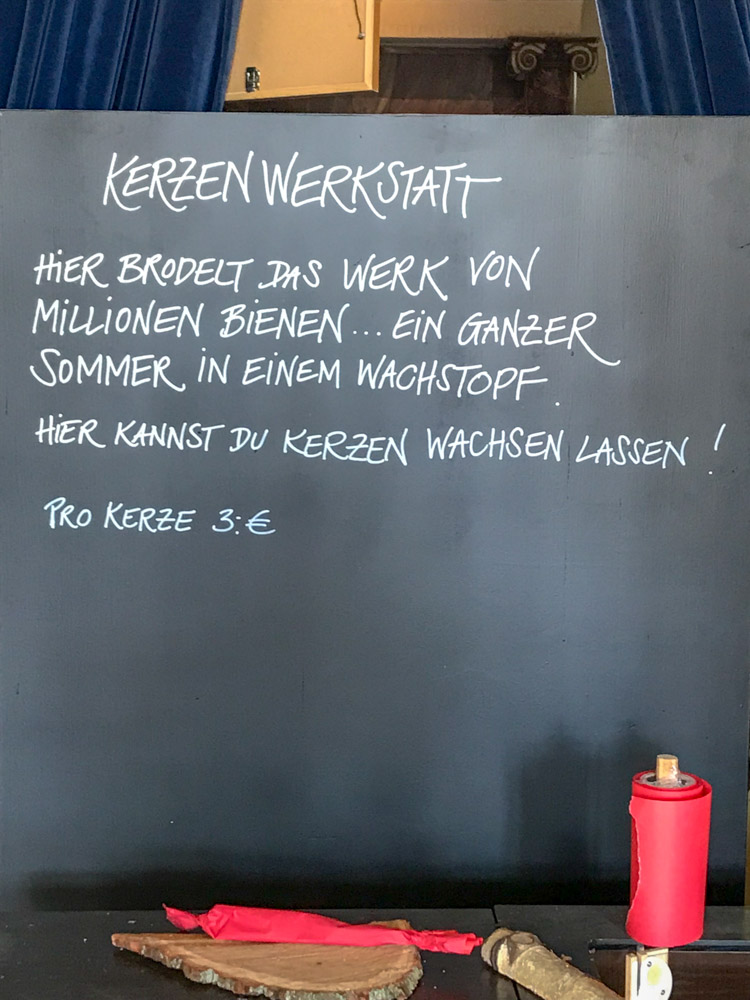 KERZEN WERKSTATT
HiER BRODELT DAS WERK VON
MiLLiONEN BiENEN... EiN GANZER
SOMMER iN EiNEM WACHSTOPF.
HiER KANNST DU KERZEN WACHSEN LASSEN!
PRO KERZE 3:€